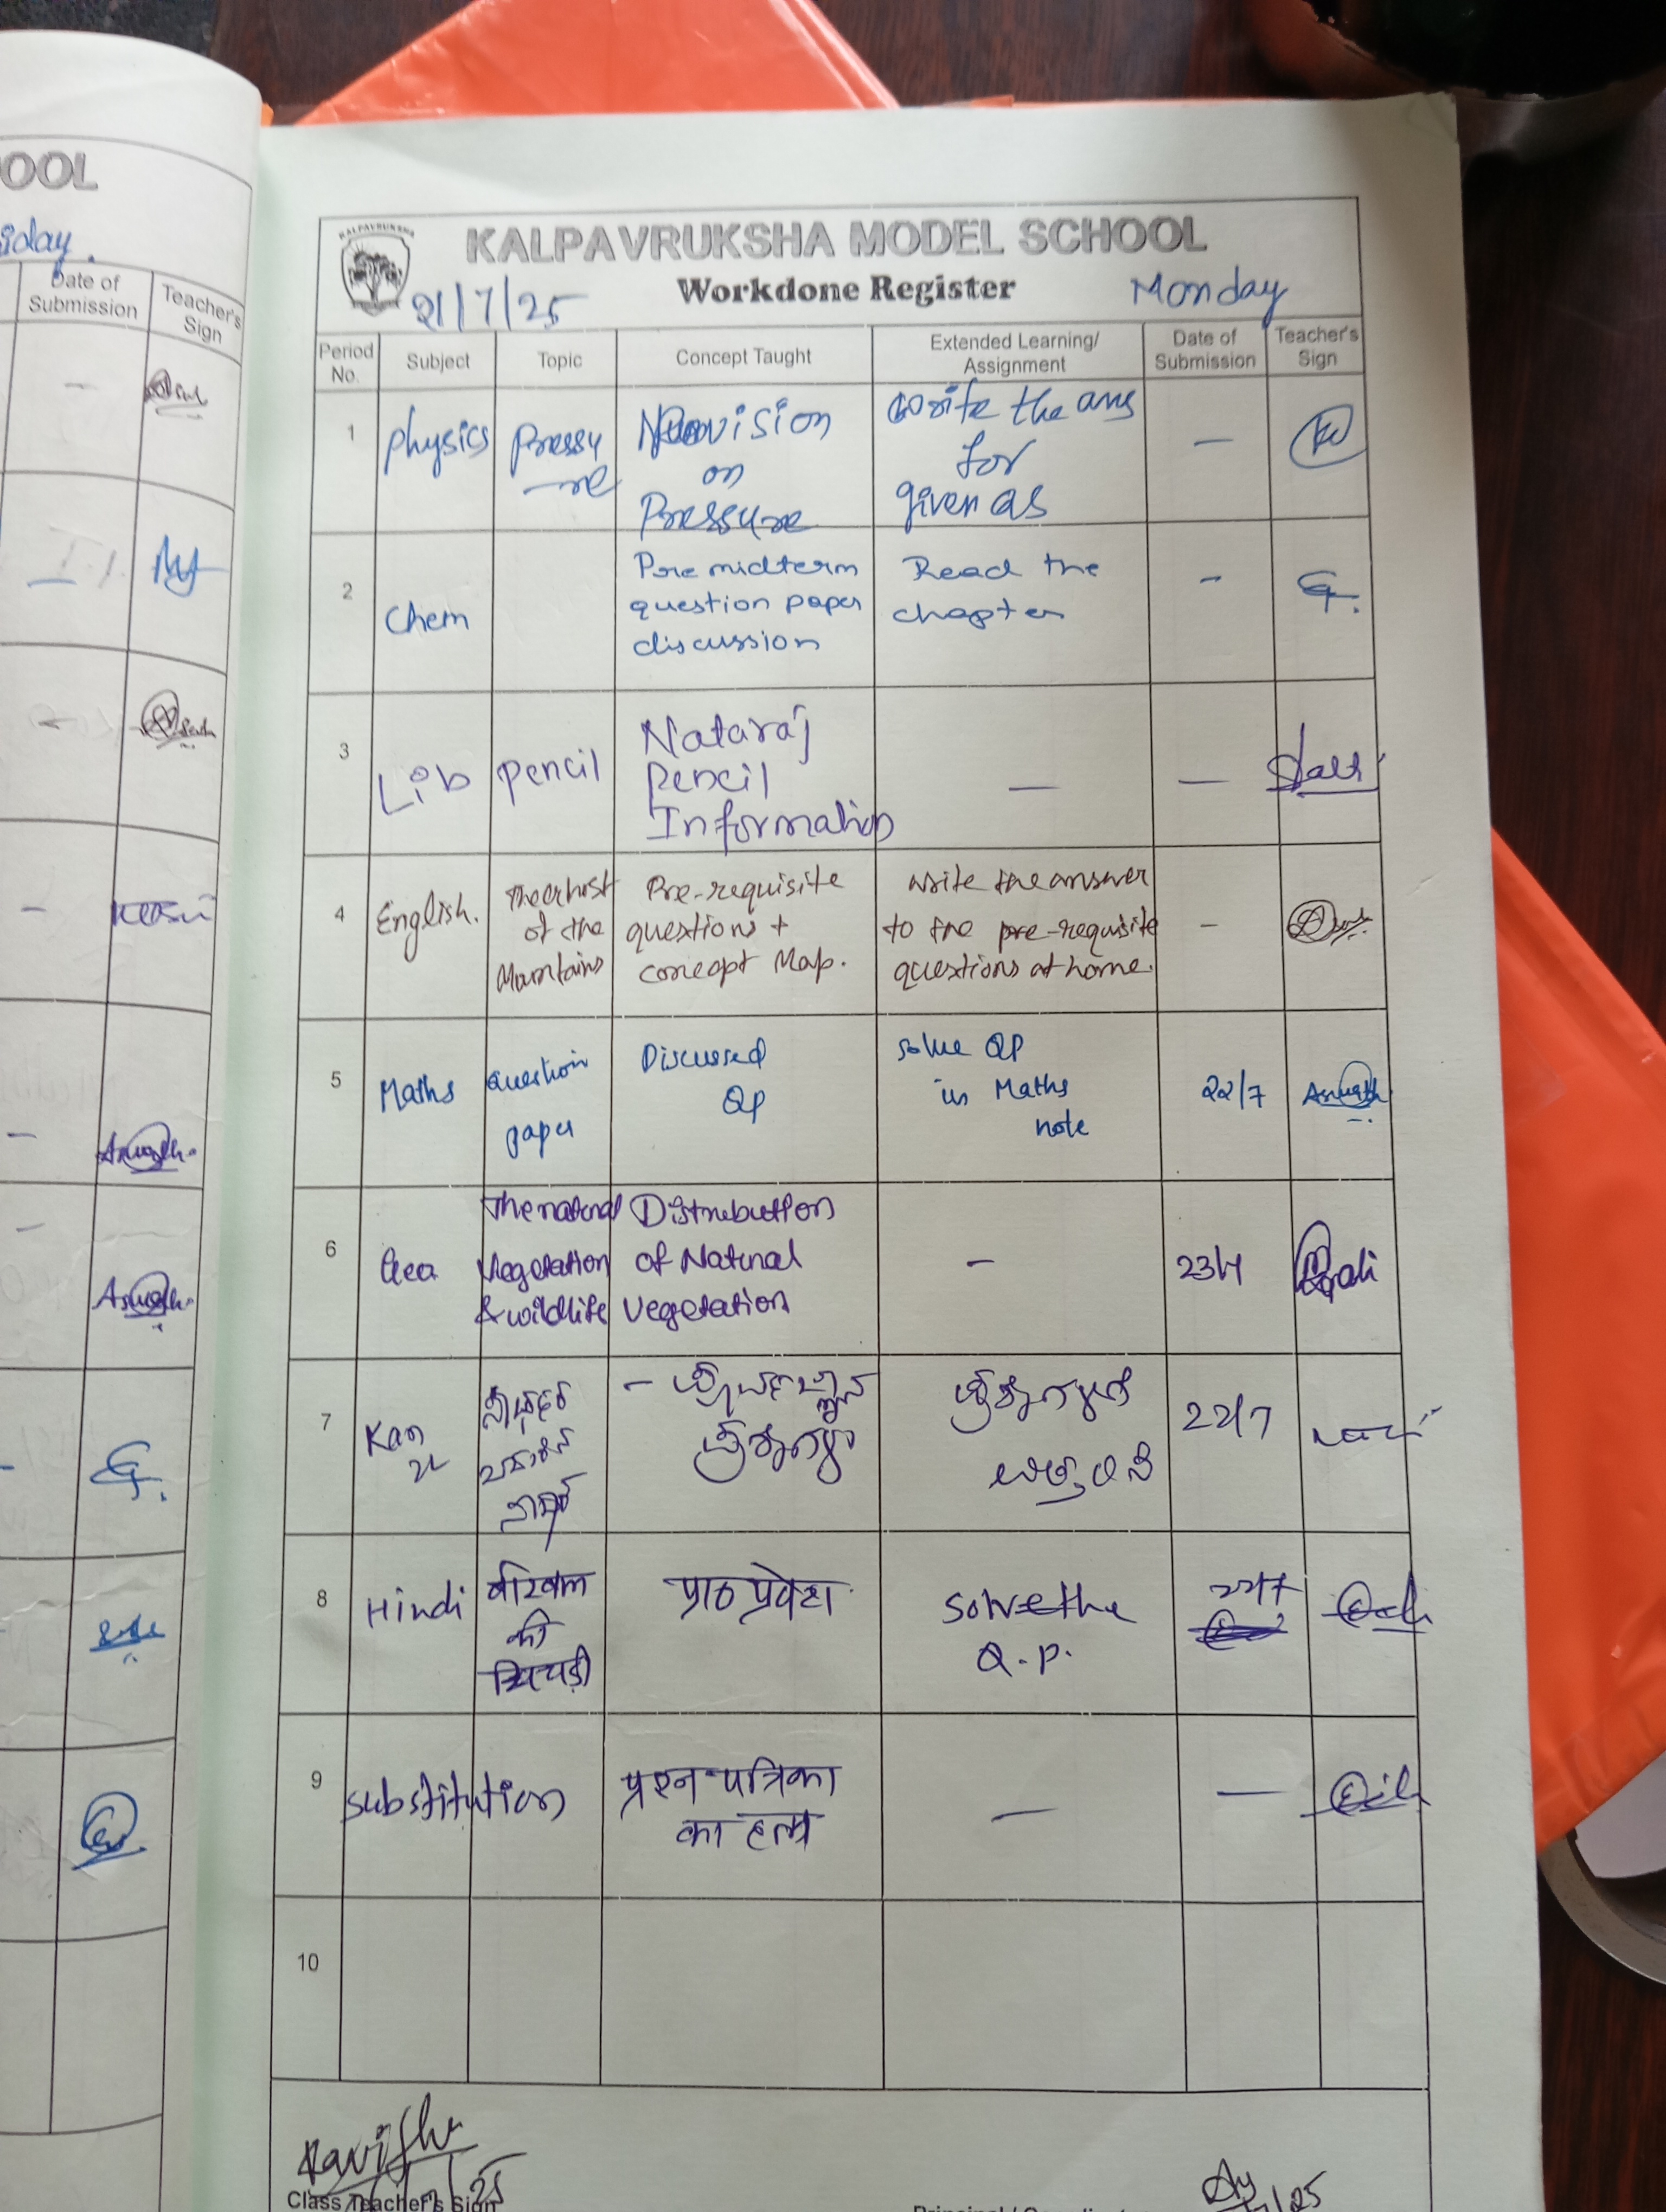 OOL
iday.
Date of Submission
Teacher's Sign
KALPAVRUKSHA
KALPAVRUKSHA MODEL SCHOOL
21/7/25 Workdone Register Monday
Period No. Subject Topic Concept Taught Extended Learning/ Assignment Date of Submission Teacher's Sign
1 physics Pressu-re Revision on Pressure write the ans for given as —
2 Chem Pre midterm question paper discussion Read the chapter -
3 Lib pencil Nataraj Pencil Information — —
4 English. of the Pre-requisite questions + concept Map. write the answer to the pre-requisite questions at home. -
5 Maths question paper Discussed QP solve QP in Maths note 22/7 Aswath
6 Geo The natural Vegetation & wildlife Distribution of Natural Vegetation - 23/7
7 Kan 22/7
8 Hindi बीरबल की खिचड़ी पाठ प्रवेश solve the Q.P. 22/7
9 substitution प्रश्न-पत्रिका का हल — —
10
Class Teacher's Sign